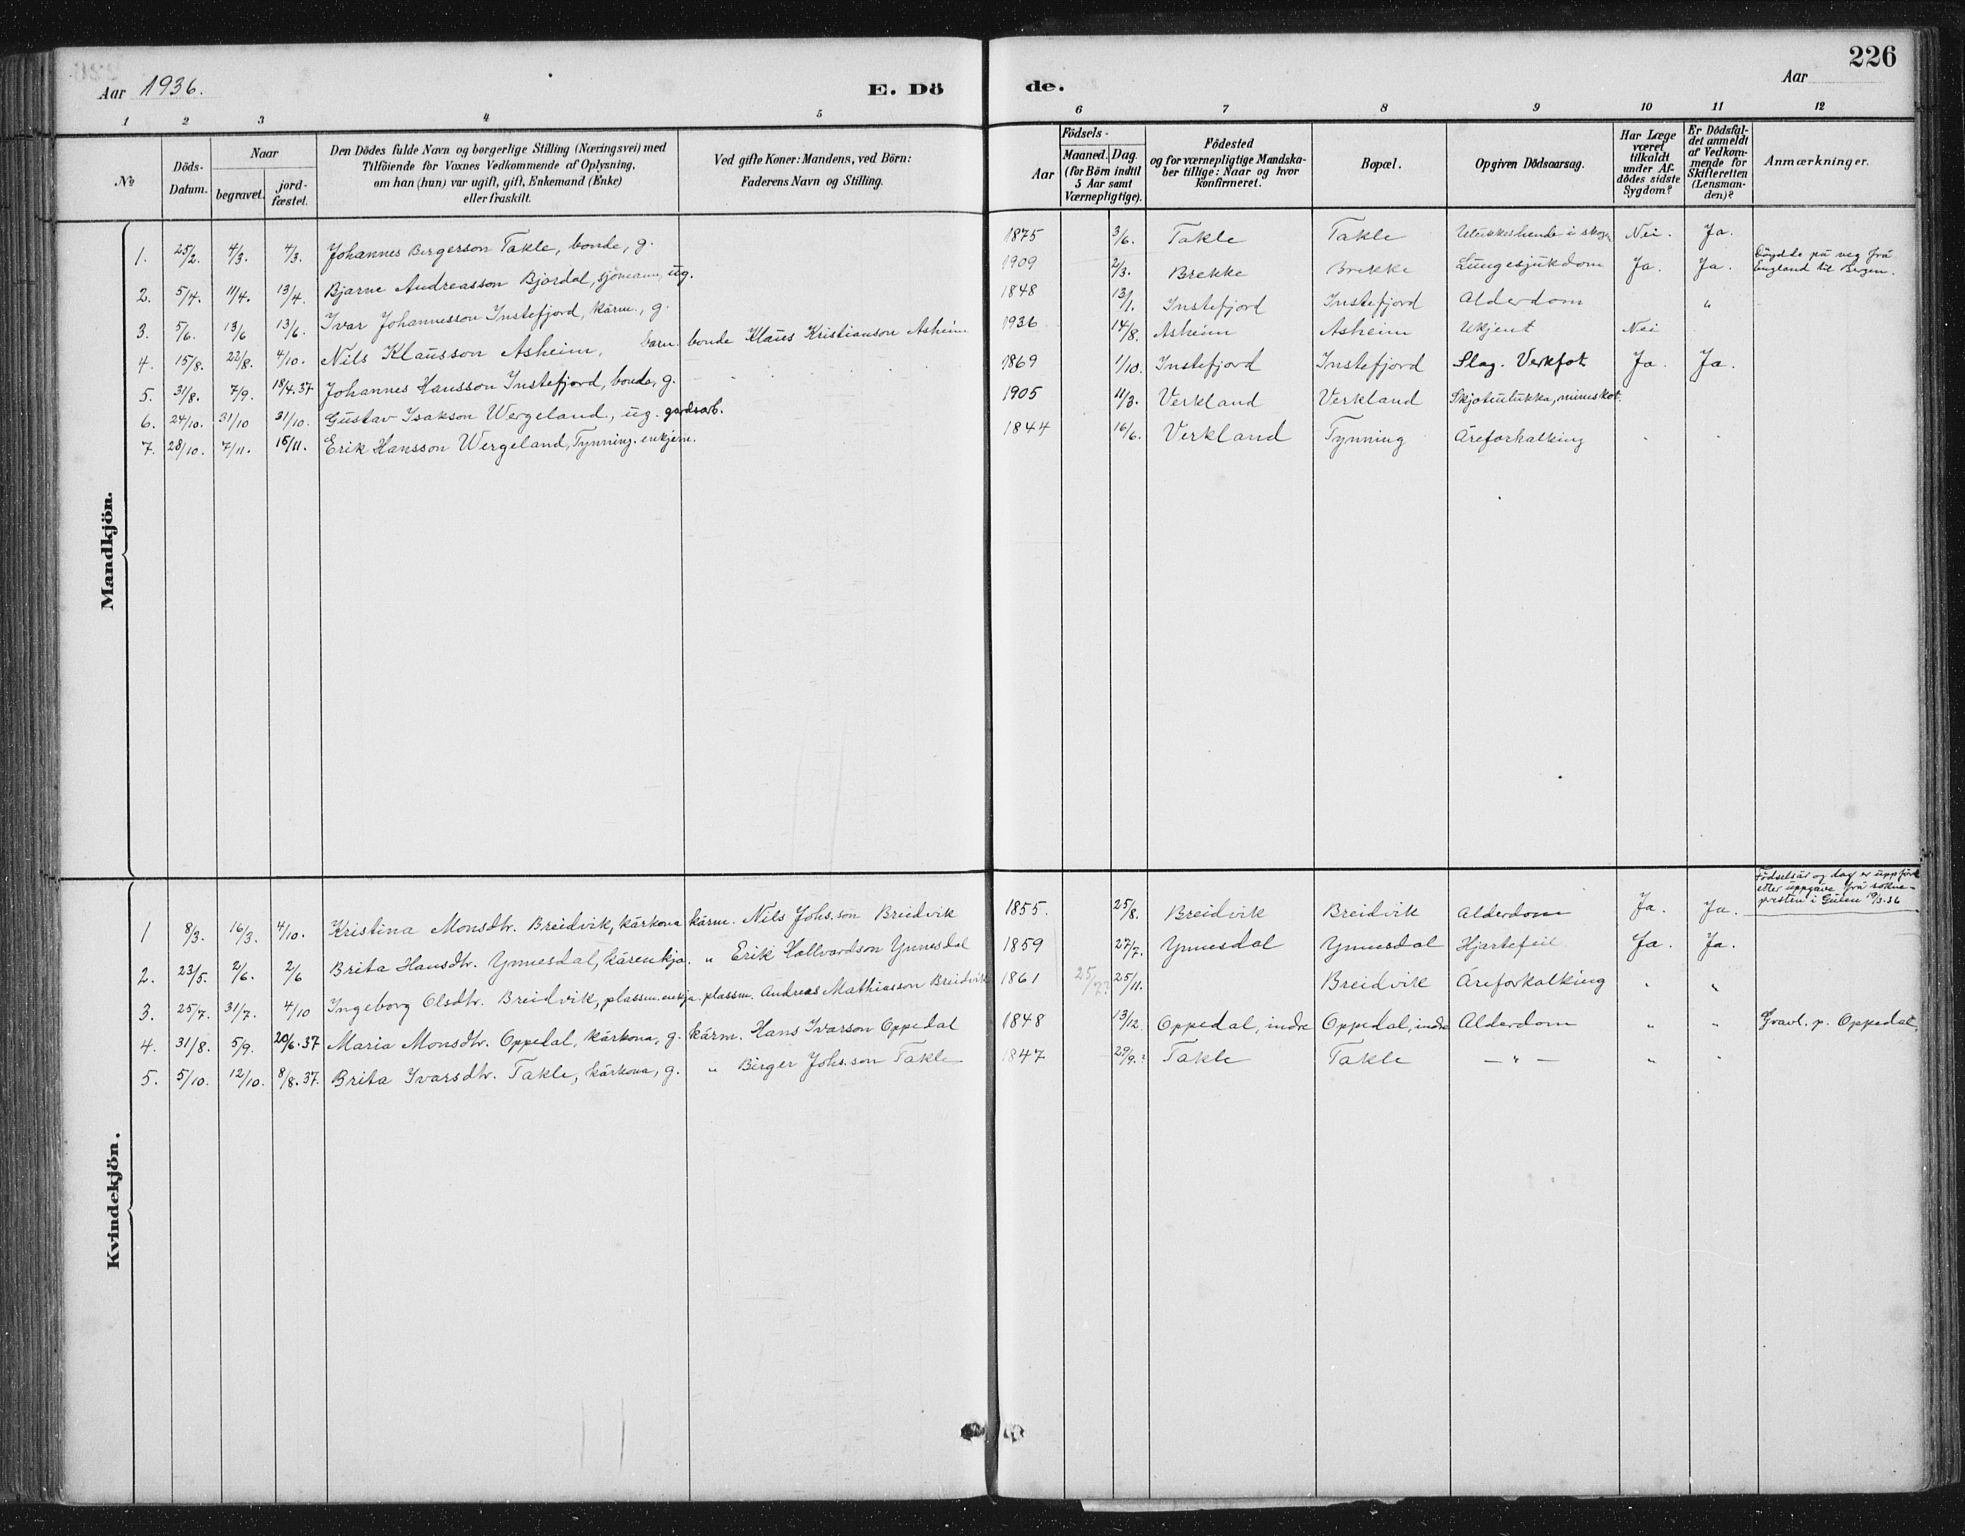 226
Aar 1936. E. Dö de. Aar
1 2 3 4 5 6 7 8 9 10 11 12
No
Döds-Datum.
Naar
begravet.
jord-fæstet.
Den Dödes fulde Navn og borgerlige Stilling (Næringsvei) med
Tilföiende for Voxnes Vedkommende af Oplysning,
om han (hun) var ugift, gift, Enkemand (Enke)
eller fraskilt.
Ved gifte Koner: Mandens, ved Börn:
Faderens Navn og Stilling.
Födsels-
Aar
Maaned. Dag.
(for Börn indtil
5 Aar samt
Værnepligtige).
Födested
og for værnepligtige Mandska-
ber tillige: Naar og hvor
konfirmeret.
Bopæl.
Opgiven Dödsaarsag.
Har Læge
været
tilkaldt
under Af-
dödes sidste
Sygdom?
Er Dödsfal-
det anmeldt
af Vedkom-
mende for
Skifteretten
(Lensman-
den)?
Anmærkninger.
Mandkjön.
1. 25/2. 4/3. 4/3. Johannes Bergerson Takle, bonde, g. 1875 3/6. Takle Takle Ulukkeshende i skogen Nei. Ja.
2. 5/4. 11/4. 13/4. Bjarne Andreasson Bjordal, sjömann, ug. 1909 2/3. Brekke Brekke Lungesjukdom Ja. Ja. Döydde på veg frå England til Bergen.
3. 5/6. 13/6 13/6. Ivar Johannesson Instefjord, kårm., g. 1848 13/1. Instefjord Instefjord Alderdom "
4. 15/8. 22/8. 4/10. Nils Klausson Asheim, barn. bonde Klaus Kristianson Asheim 1936 14/8. Asheim Asheim Ukjent Nei
5. 31/8. 7/9. 18/4.37 Johannes Hansson Instefjord, bonde, g. 1869 1/10. Instefjord Instefjord Slag. Verkfot Ja. Ja.
6. 24/10. 31/10 31/10. Gustav Isakson Wergeland, ug. gardsarb. 1905 11/3. Verkland Verkland
7. 28/10. 7/11. 15/11. Erik Hansson Wergeland, Tynning. enkjem. 1844 16/6. Verkland Tynning Åreforkalking " "
Kvindekjön.
1 8/3. 16/3. 4/10. Kristina Monsdtr. Breidvik, kårkona kårm. Nils Johs.son Breidvik 1855. 25/8. Breidvik Breidvik Alderdom Ja. Ja. Födselsår og dag er uppfört etter uppgåve frå sokne-presten i Gulen 19/3.36
2. 23/5. 2/6. 2/6 Brita Hansdtr. Ynnesdal, kårenkja. " Erik Hallvardson Ynnesdal 1859 27/7. Ynnesdal Ynnesdal Hjartefeil Ja. Ja.
3. 25/7. 31/7. 4/10 Ingeborg Olsdtr. Breidvik, plassm.enkja. plassm. Andreas Mathiasson Breidvik 1861 25/11. Breidvik Åreforkalking " "
4. 31/8. 5/9. 20/6.37 Maria Monsdtr. Oppedal, kårkona, g. kårm. Hans Ivarson Oppedal 1848 13/12. Oppedal, indre Oppedal, indre Alderdom " " Gravl. p. Oppedal.
5. 5/10. 12/10. 8/8.37. Brita Ivarsdtr. Takle, kårkona, g. " Birger Johs.son Takle 1847 29/9. Takle Takle — " — " "